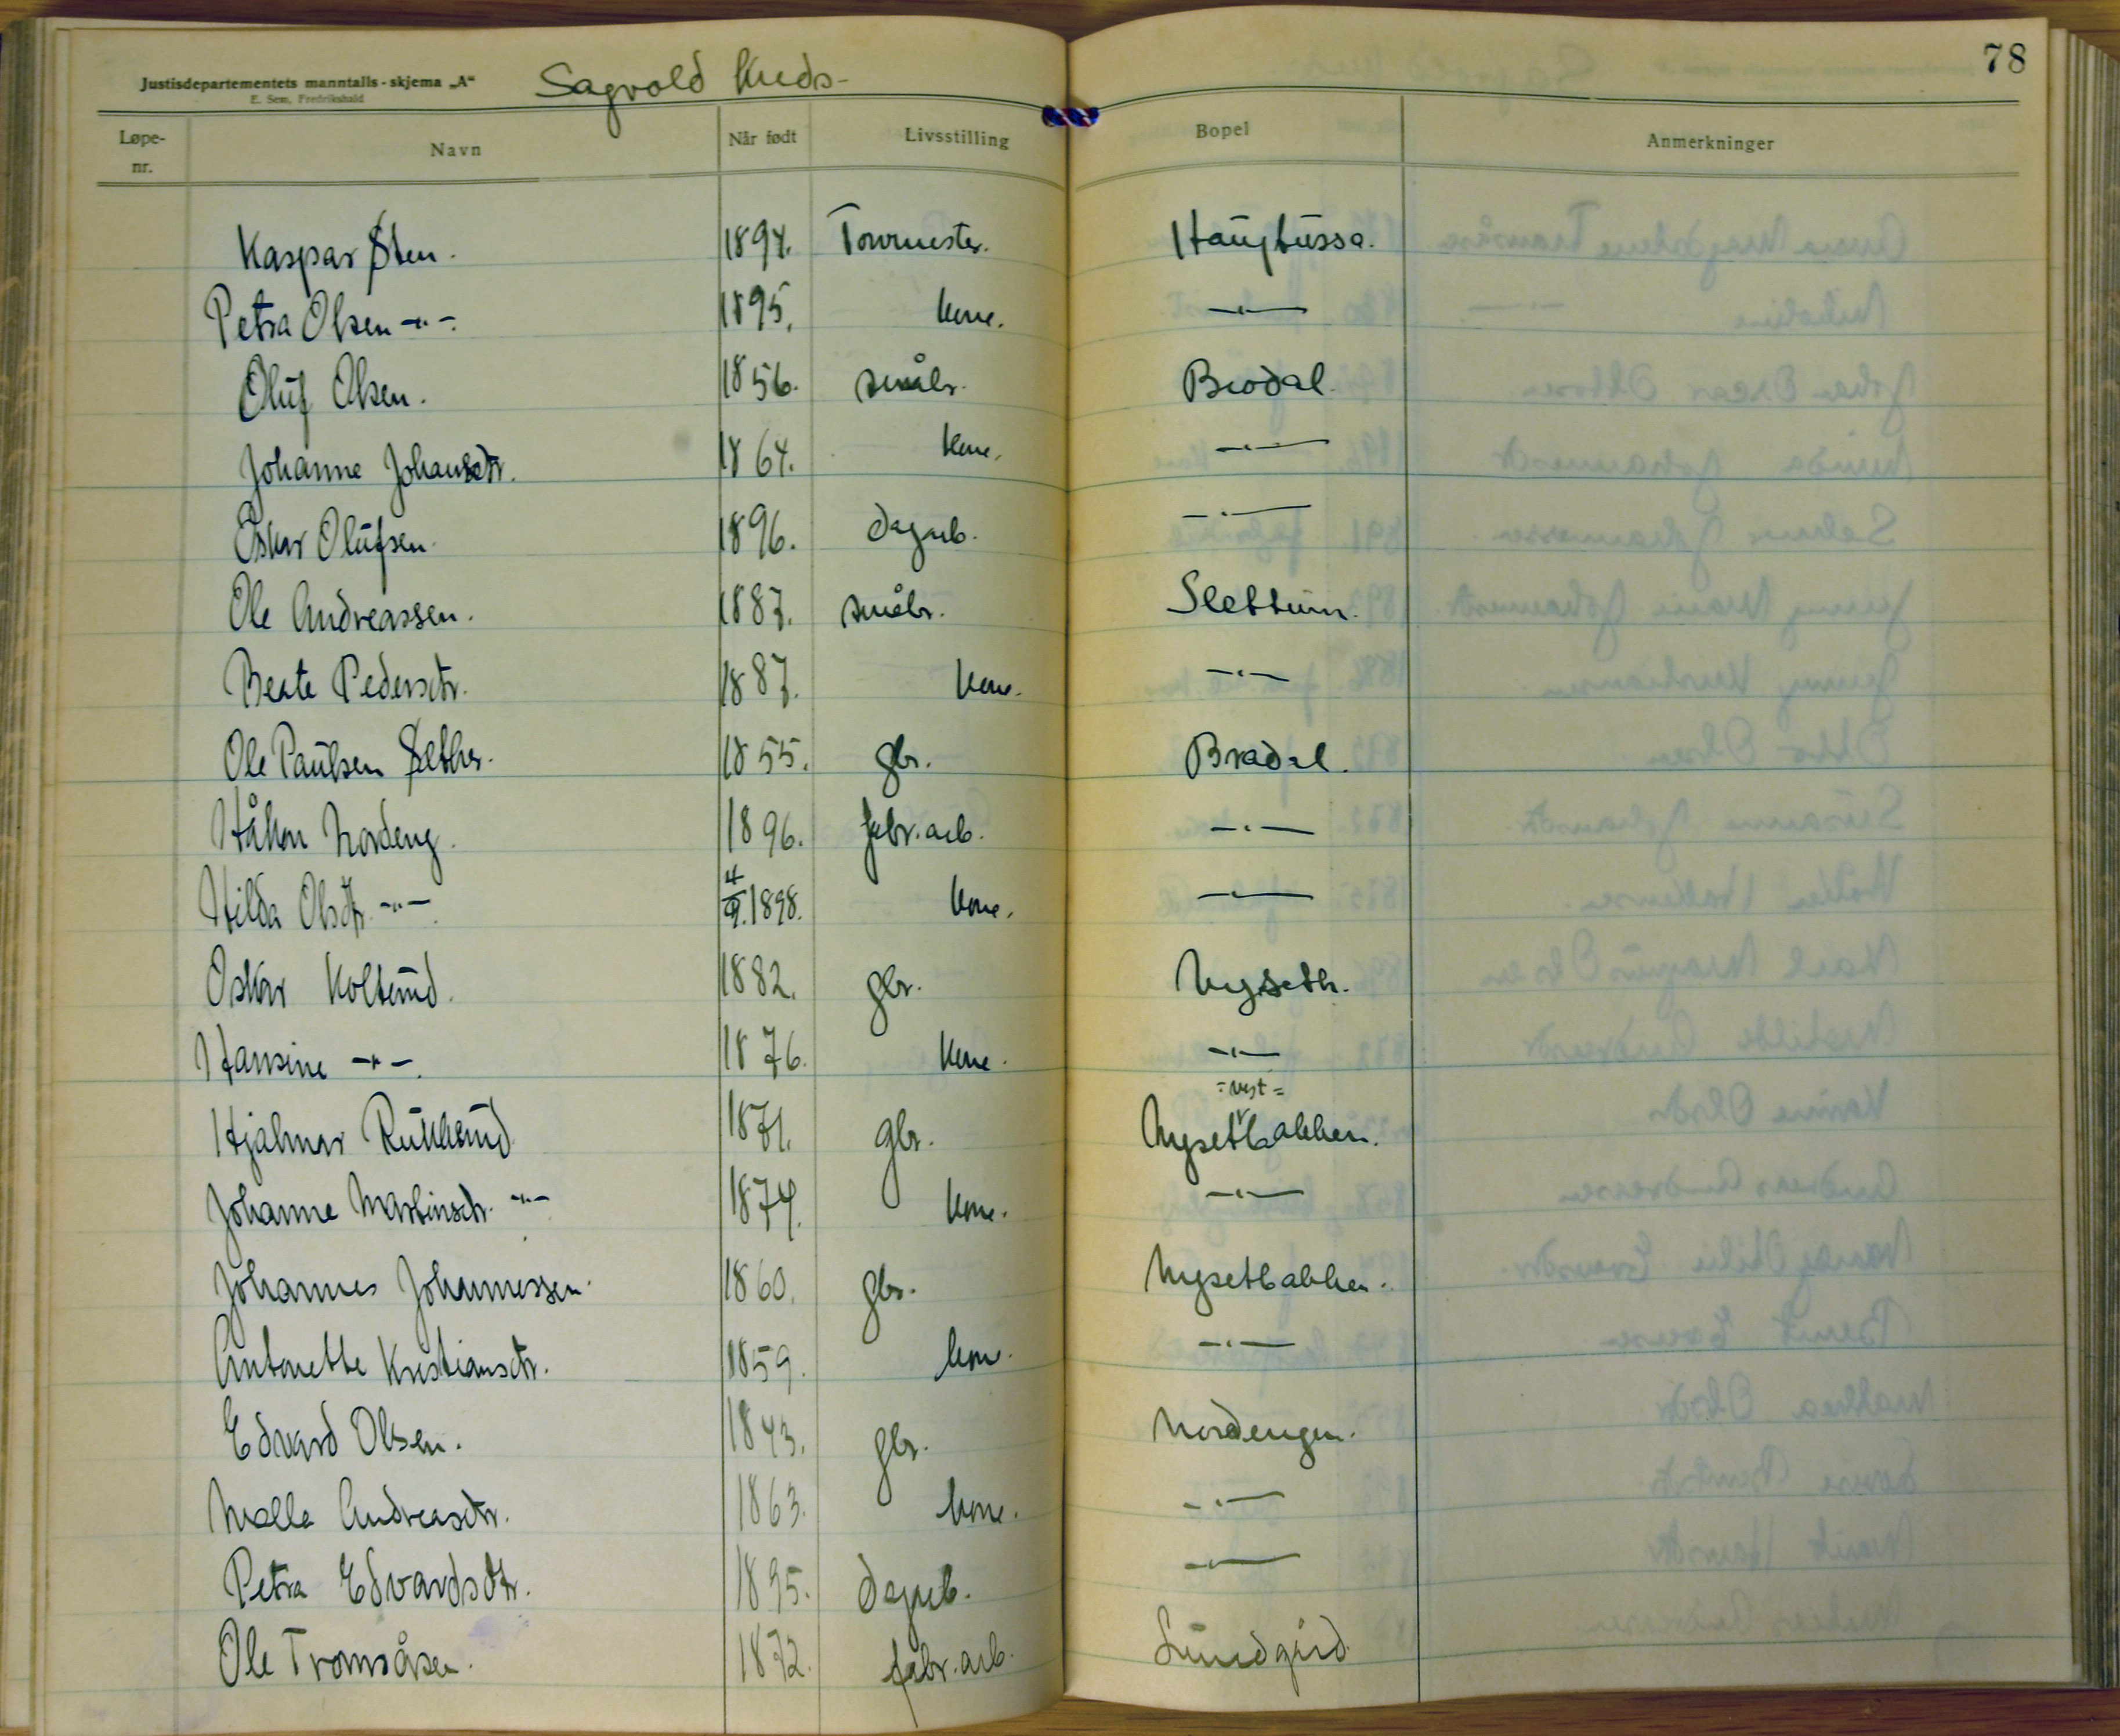 78
Justisdepartementets manntalls-skjema „A“ Sagvold Kreds-
E. Sem, Fredrikshald
Løpe-nr. Navn Når født Livsstilling Bopel Anmerkninger
Kaspar Sten. 1894. Tourmester. Haugtussa.
Petra Olsen -"- 1895. kone. -"-
Oluf Olsen. 1856. småbr. Brodal.
Johanne Johansdtr. 1864. kone. -"-
Oskar Olufsen. 1896. dagarb. -"-
Ole Andreassen. 1887. småbr. Slettum.
Beate Pedersdtr. 1887. kone. -"-
Ole Paulsen Sæther. 1855. gbr. Bradal.
Håkon Nordeng. 1896. fabr.arb. -"-
Hilda Olsdtr. -"- 4/9.1898. kone. -"-
Oskar Koltund. 1882. gbr. Nyseth.
Hansine -"-. 1876. kone. -"-
Hjalmar 1871. gbr. Nysetbakken. =vest=
Johanne Martinsdtr. -"- 1874. kone. -"-
Johannes Johannessen. 1860. gbr. Nysetbakken.
Antonette Kristiansdtr. 1859. kone. -"-
Edvard Olsen. 1843. gbr. Nordengen.
Malla Andreasdtr. 1863. kone. -"-
Petra Edvardsdtr. 1895. dagarb. -"-
Ole Tromsåsen. 1872. fabr.arb. Lundgård.